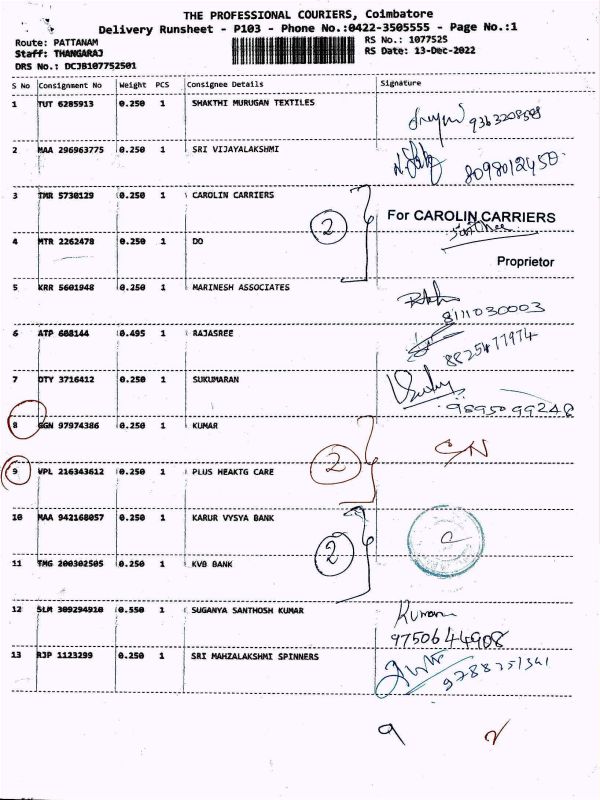 THE PROFESSIONAL COURIERS, Coimbatore
Delivery Runsheet - P103 - Phone No.:0422-3505555 - Page No.:1
Route: PATTANAM
RS No.: 1077525
Staff: THANGARAJ
RS Date: 13-Dec-2022
DRS No.: DCJB107752501
S No Consignment No Weight PCS Consignee Details Signature
1 TUT 6285913 0.250 1 SHAKTHI MURUGAN TEXTILES
2 MAA 296963775 0.250 1 SRI VIJAYALAKSHMI
8098012450
3 TMR 5730129 0.250 1 CAROLIN CARRIERS
2 For CAROLIN CARRIERS
4 MTR 2262478 0.250 1 DO
Proprietor
5 KRR 5601948 0.250 1 MARINESH ASSOCIATES
8111030003
6 ATP 608144 0.495 1 RAJASREE
8825477974
7 DTY 3716412 0.250 1 SUKUMARAN
9895099248
8 GGN 97974386 0.250 1 KUMAR
2 CN
9 VPL 216343612 0.250 1 PLUS HEAKTG CARE
10 MAA 942168057 0.250 1 KARUR VYSYA BANK
2
11 TMG 200302505 0.250 1 KVB BANK
12 SLM 309294910 0.550 1 SUGANYA SANTHOSH KUMAR
9750644908
13 RJP 1123299 0.250 1 SRI MAHZALAKSHMI SPINNERS
9788251341
9 2